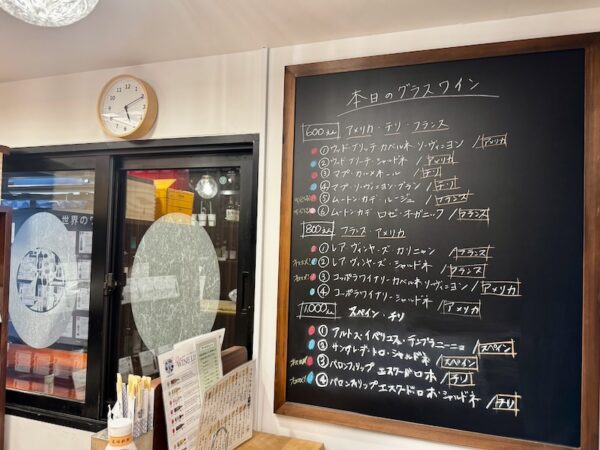 本日のグラスワイン
600yen アメリカ・チリ・フランス
①ウッド・ブリッヂ カベルネ・ソーヴィニヨン/アメリカ
②ウッド・ブリッヂ・シャルドネ/アメリカ
③マプ・カルメネール/チリ
④マプ・ソーヴィニヨン・ブラン/チリ
⑤ムートン・カデ・ルージュ/フランス
⑥ムートン・カデ ロゼ・オーガニック/フランス
800yen フランス・アメリカ
①レア ヴィンヤーズ カリニャン/フランス
オススメ!②レア ヴィンヤーズ・シャルドネ/フランス
③コッポラワイナリー・カベルネ・ソーヴィニヨン/アメリカ
④コッポラワイナリー・シャルドネ/アメリカ
1,000yen スペイン・チリ
①アルトス・イベリコス・テンプラニーニョ/スペイン
②サングレ・デ・トロ・シャルドネ/スペイン
③バロンフィリップ エスクードロホ/チリ
④バロンフィリップ エスクードロホ・シャルドネ/チリ
世界のワ